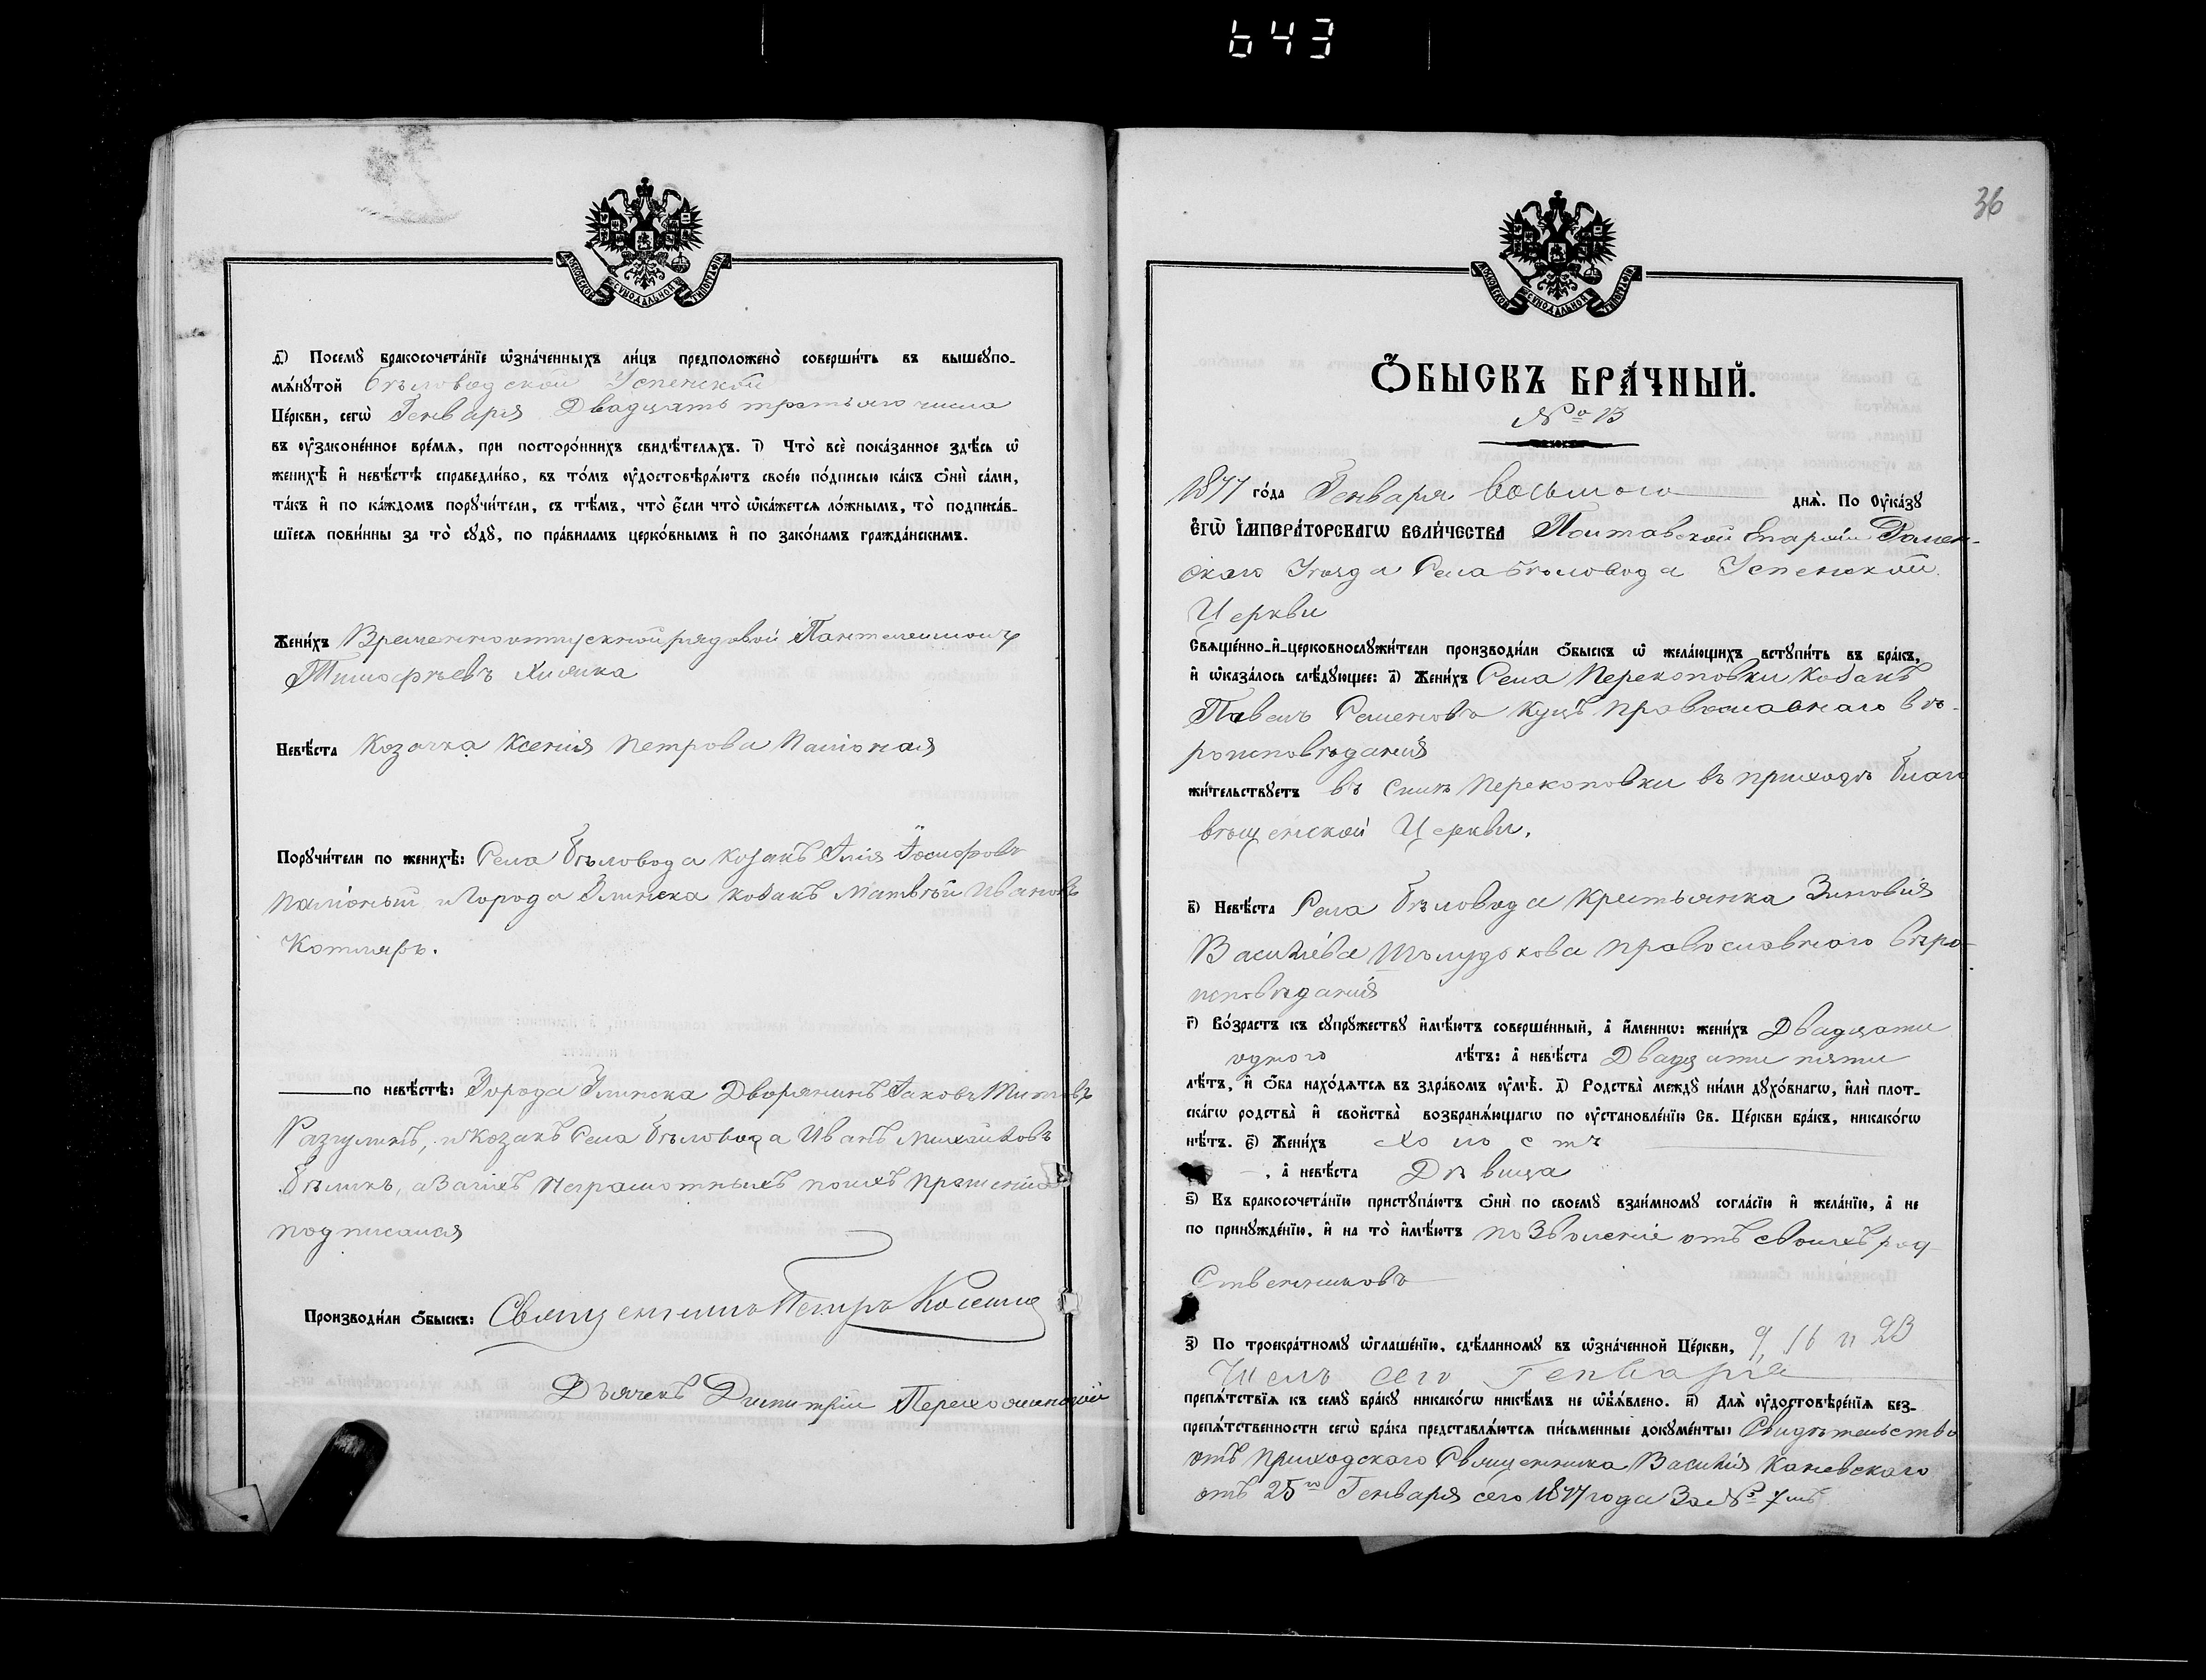 643
МОСКОВСКОЙ СѴНОДАЛЬНОЙ ТИПОГРАФІИ
д҃) Посемꙋ бракосочета́нїе ѡ҆зна́ченныхъ ли́цъ предположено̀ соверши́ть въ вышеꙋпо-
мѧ́нꙋтой Бѣловодской Успенской
Це́ркви, сегѡ̀ Генваря Двадцать третьяго числа
въ ᲂу҆зако́ненное вре́мѧ, при посторо́ннихъ свидѣ́телѧхъ. і҃) Что̀ всѐ пока́занное здѣ́сь ѡ҆
женихѣ̀ и҆ невѣ́стѣ справедли́во, въ то́мъ ᲂу҆достовѣрѧ́ютъ свое́ю по́дписью ка́къ ѻ҆нѝ са́ми,
та́къ и҆ по ка́ждомъ порꙋчи́тели, съ тѣ́мъ, что̀ є҆́сли что̀ ѡ҆ка́жетсѧ ло́жнымъ, то̀ подписа́в-
шїесѧ пови́нны за то̀ сꙋдꙋ̀, по пра́виламъ церко́внымъ и҆ по зако́намъ гражда́нскимъ.
Жени́хъ Временноотпускной рядовой Пантелеимонъ
Тимофѣевъ Хиляка
Невѣ́ста Козачка Ксенія Петрова Паліоная
Порꙋчи́тели по женихѣ̀: Села Бѣловода козакъ Илія Іосифовъ
Паліоный и Города Глинска козакъ Матвѣй Ивановъ
Котляръ.
по невѣ́стѣ: Города Глинска Дворянинъ Іаковъ Титовъ
Разгулинъ, и Козакъ Села Бѣловода Иванъ Михайловъ
Бѣликъ, а за нихъ неграмотныхъ по ихъ прошенію
подписался
Производи́ли ѻ҆́быскъ: Священникъ Петръ
Дьячекъ Димитрій
36
МОСКОВСКОЙ СѴНОДАЛЬНОЙ ТИПОГРАФІИ
Ѻ҆́БЫСКЪ БРА́ЧНЫЙ.
№ 13
1877 го́да Генваря восьмого днѧ̀. По Оу҆ка́зꙋ
Є҆ГѠ̀ И҆МПЕРА́ТОРСКАГѠ ВЕЛИ́ЧЕСТВА Полтавской Епархіи Ромен-
скаго Уѣзда Села Бѣловода Успенской
Церкви
Свѧще́нно-и҆-церковнослꙋжи́тели производи́ли ѻ҆́быскъ ѡ҆ жела́ющихъ встꙋпи́ть въ бра́къ,
и҆ ѡ҆каза́лось слѣ́дꙋющее: а҃) Жени́хъ Села Перекоповки Козакъ
Павелъ Семеновъ Куцъ православнаго вѣ-
роисповѣданія
жи́тельствꙋетъ въ Селѣ Перекоповки въ приходѣ Благо
вѣщенской Церкви.
в҃) Невѣ́ста Села Бѣловода Крестьянка Зиновія
Василіева православнаго вѣро-
исповѣданія
г҃) Во́зрастъ къ сꙋпрꙋ́жествꙋ и҆мѣ́ютъ соверше́нный, а҆ и҆́менно: жени́хъ Двадцати
одного лѣ́тъ: а҆ невѣ́ста Двадцати пяти
лѣ́тъ, и҆ ѻ҆́ба нахо́дѧтсѧ въ здра́вомъ ᲂу҆мѣ̀. д҃) Родства̀ междꙋ̀ ни́ми дꙋхо́внагѡ, и҆лѝ пло́т-
скагѡ родства̀ и҆ свойства̀ возбранѧ́ющагѡ по ᲂу҆становле́нїю Св. Це́ркви бра́къ, никако́гѡ
нѣ́тъ. є҃) Жени́хъ Холостъ
, а҆ невѣ́ста Дѣвица
ѕ҃) Въ бракосочета́нїю пристꙋпа́ютъ ѻ҆нѝ по своемꙋ̀ взаи́мномꙋ согла́сїю и҆ жела́нїю, а҆ не
по принꙋжде́нїю, и҆ на то̀ и҆мѣ́ютъ позволеніе отъ своихъ род
ственниковъ
з҃) По троекра́тномꙋ ѡ҆глаше́нїю, сдѣ́ланномꙋ въ ѡ҆зна́ченной Це́ркви, 9, 16 и 23
Числъ сего Генваря
препѧ́тствїѧ къ семꙋ̀ бра́кꙋ никако́гѡ никѣ́мъ не ѡ҆б̾ѧ́влено. и҃) Длѧ̀ ᲂу҆достовѣре́нїѧ без-
препѧ́тственности сегѡ̀ бра́ка представлѧ́ютсѧ пи́сьменные докꙋме́нты: Свидѣтельство
отъ приходскаго Священника Василія Каневскаго
отъ 25го Генваря сего 1877 года За № 7мъ